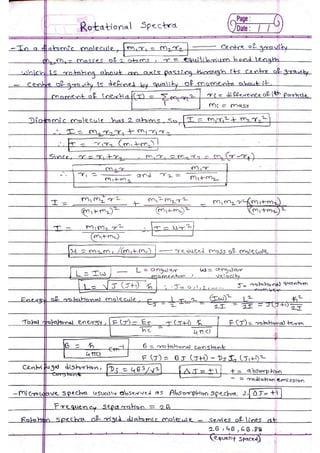 Page :
Date : / /
Rotational Spectra
- In a diatomic molecule, m₁r₁ = m₂r₂ — centre of gravity
m₁, m₂ = masses of 2 atoms, r = equilibrium bond length
which is rotating about an axis passing through its centre of gravity
- Centre of gravity is defined by equality of moments about it.
moment of inertia (I) = Σ mᵢrᵢ² rᵢ = difference of ith particle
mᵢ = mass
Diatomic molecule has 2 atoms, so, I = m₁r₁² + m₂r₂²
∴ I = m₂r₂r₁ + m₁r₁r₂
∴ I = r₁r₂ (m₁+m₂)
Since, r = r₁+r₂ , m₁r₁ = m₂r₂ = m₂(r-r₁)
∴ r₁ = m₂r / m₁+m₂ and r₂ = m₁r / m₁+m₂
I = m₁m₂²r² / (m₁+m₂)² + m₁²m₂r² / (m₁+m₂)² = m₁m₂r²(m₁+m₂) / (m₁+m₂)²
I = m₁m₂r² / (m₁+m₂) ; I = μr²
μ = m₁m₂/(m₁+m₂) — reduced mass of molecule
L = Iω — L = angular momentum, ω = angular velocity
L = √J(J+1) ħ ; J = 0,1,2,... J = rotational quantum number
Energy of rotational molecule, E_J = ½ Iω² = (Iω)²/2I = L²/2I = J(J+1) ħ²/2I
Total rotational energy, F(J) = E_J/hc = J(J+1) ħ / 4πcI F(J) = rotational term
B = ħ/4πcI cm⁻¹ B = rotational constant
F(J) = BJ(J+1) - D_J J²(J+1)²
Centrifugal distortion constant, D_J = 4B³/ν̃² ΔJ = ±1 + = absorption
- = radiation emission
- Microwave spectra usually observed as Absorption spectra ∴ ΔJ = +1
Frequency separation = 2B
Rotation spectra of rigid diatomic molecule - series of lines at
2B, 4B, 6B, 8B
(equally spaced)